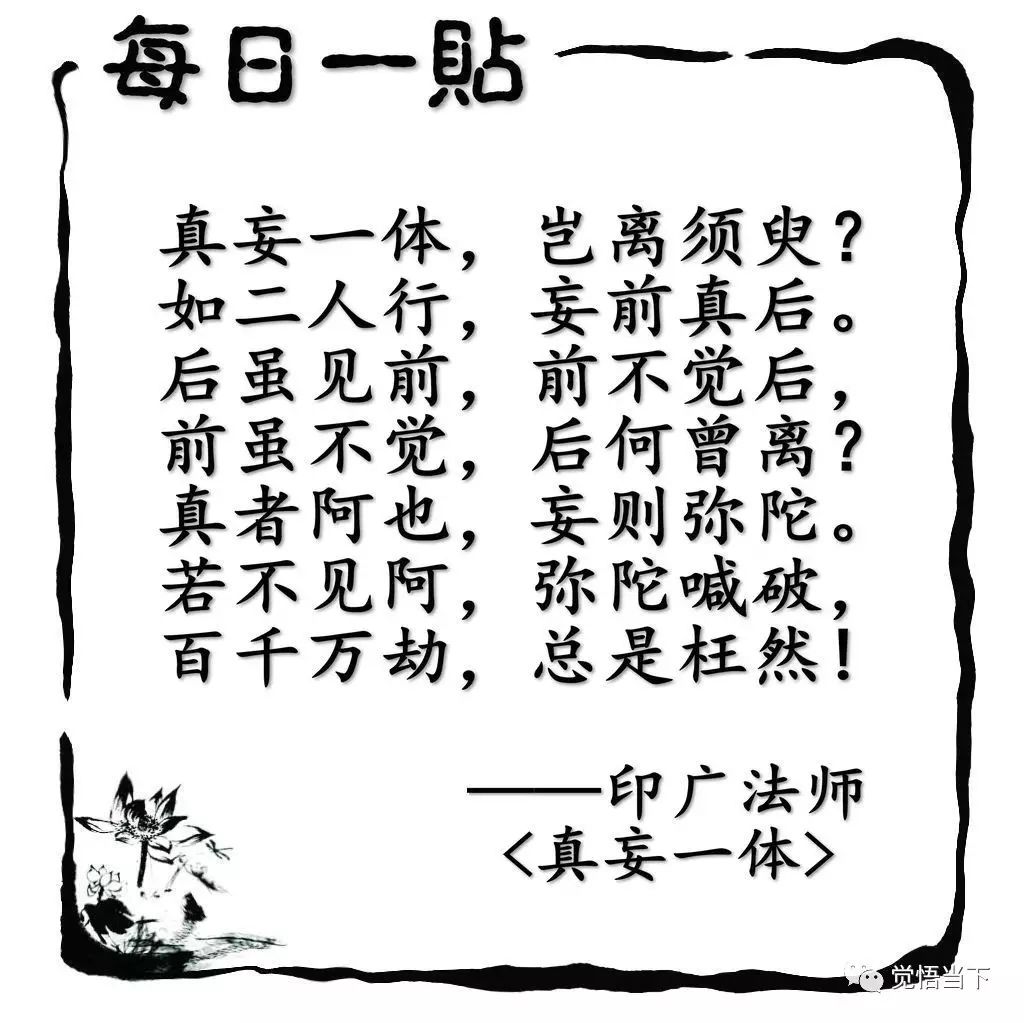 每日一貼
真妄一体，岂离须臾？
如二人行，妄前真后。
后虽见前，前不觉后，
前虽不觉，后何曾离？
真者阿也，妄则弥陀。
若不见阿，弥陀喊破，
百千万劫，总是枉然！
——印广法师
<真妄一体>
觉悟当下